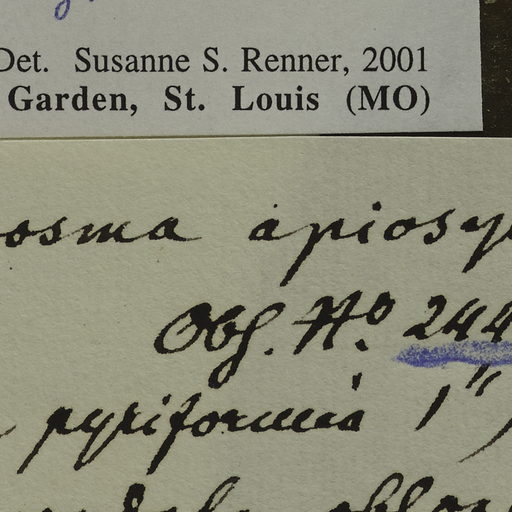 Det. Susanne S. Renner, 2001
Garden, St. Louis (MO)
osma apiosy
Obs. No. 244
pyriformia 1"